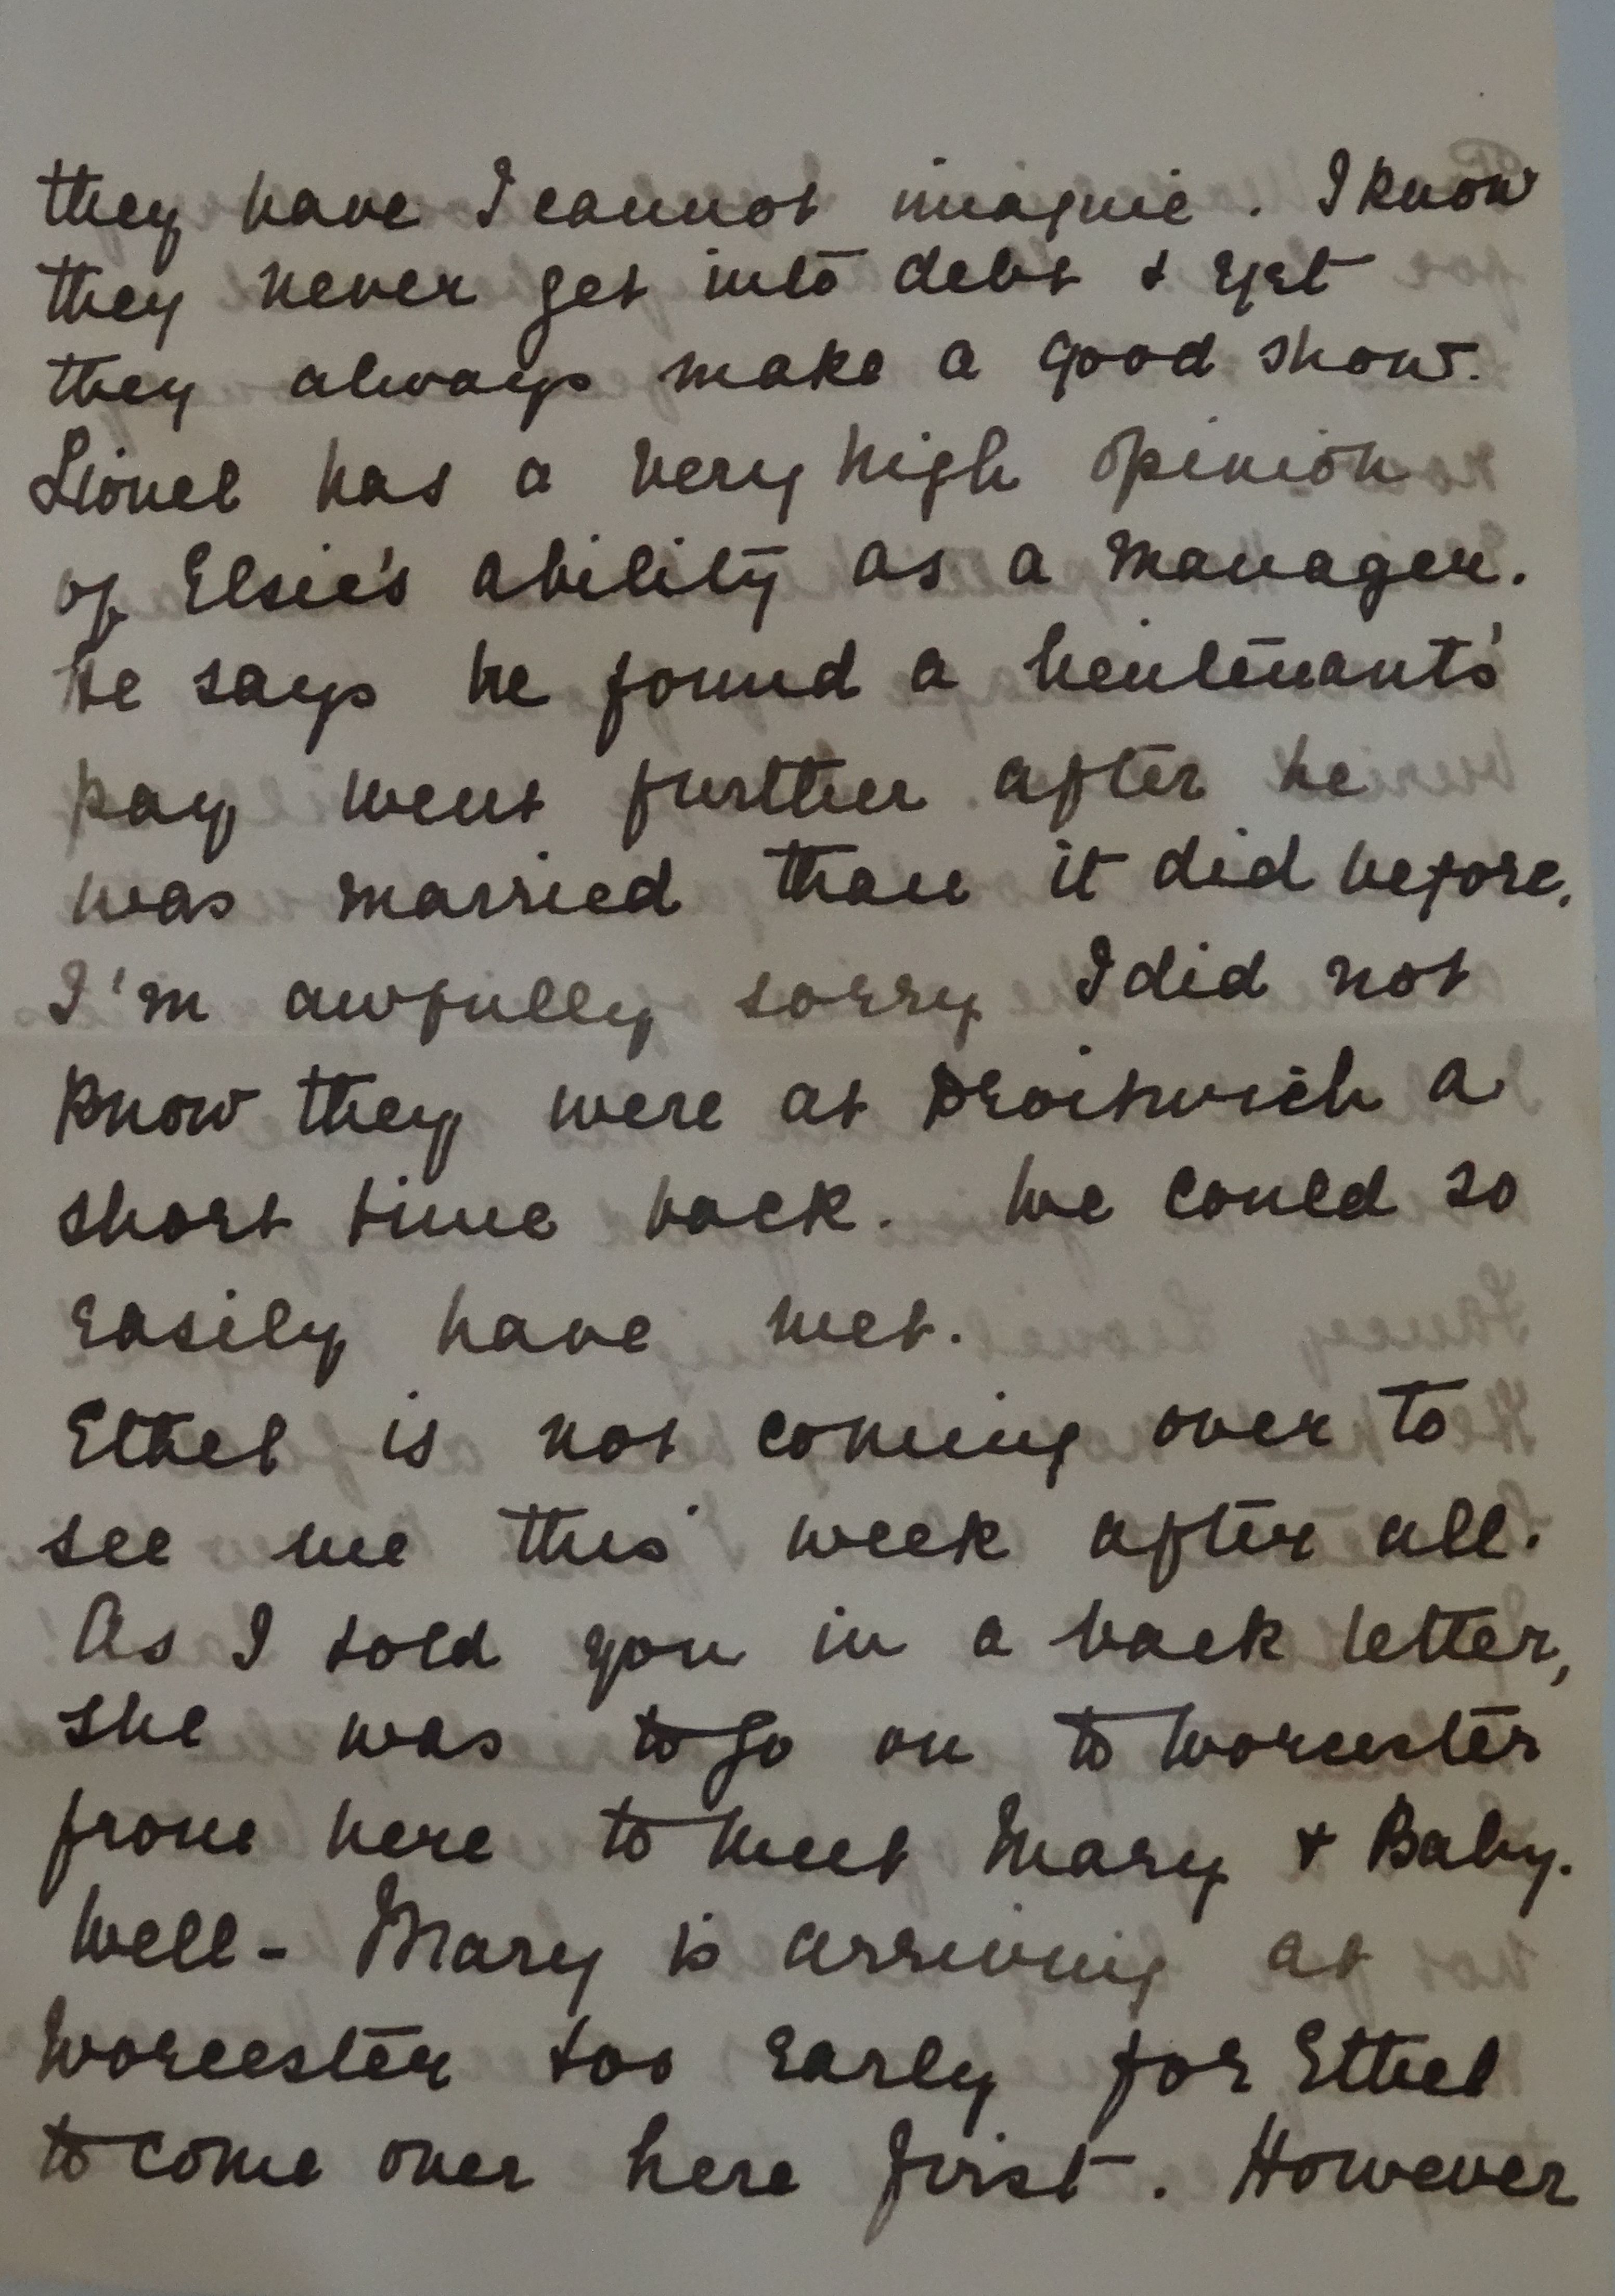 they have I cannot imagine. I know
they never get into debt & yet
they always make a good show.
Lionel has a very high opinion
of Elsie's ability as a manager.
He says he found a lieutenants'
pay went further after he
was married than it did before.
I'm awfully sorry I did not
know they were at Droitwich a
short time back. We could so
easily have met.
Ethel is not coming over to
see me this week after all.
As I told you in a back letter,
she was to go on to Worcester
from here to meet Mary & Baby.
Well - Mary is arriving at
Worcester too early for Ethel
to come over here first. However